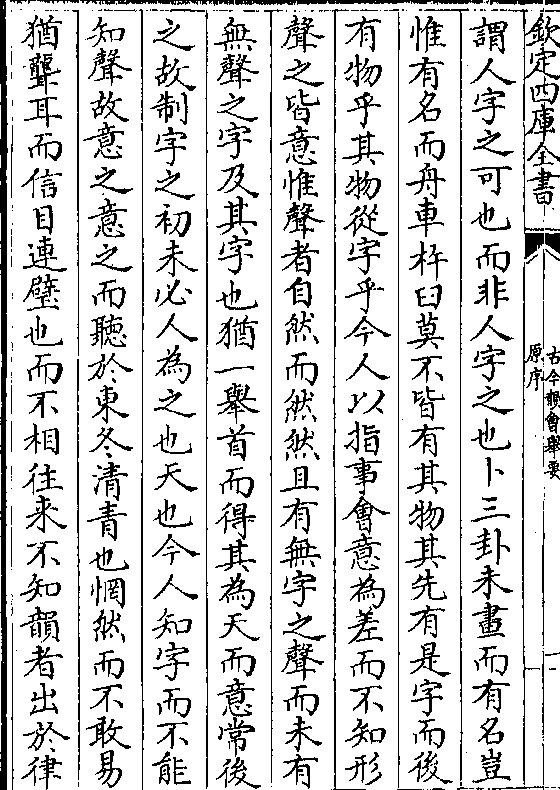 欽定四庫全書
古今韻會舉要
原序
謂人字之可也而非人字之也卜三卦未畫而有名豈
惟有名而舟車杵臼莫不皆有其物其先有是字而後
有物乎其物從字乎今人以指事會意為差而不知形
聲之皆意惟聲者自然而然然且有無字之聲而未有
無聲之字及其字也猶一舉首而得其為天而意常後
之故制字之初未必人為之也天也今人知字而不能
知聲故意之意之而聽於東冬清青也惘然而不敢易
猶聾耳而信目連璧也而不相往来不知韻者出於律